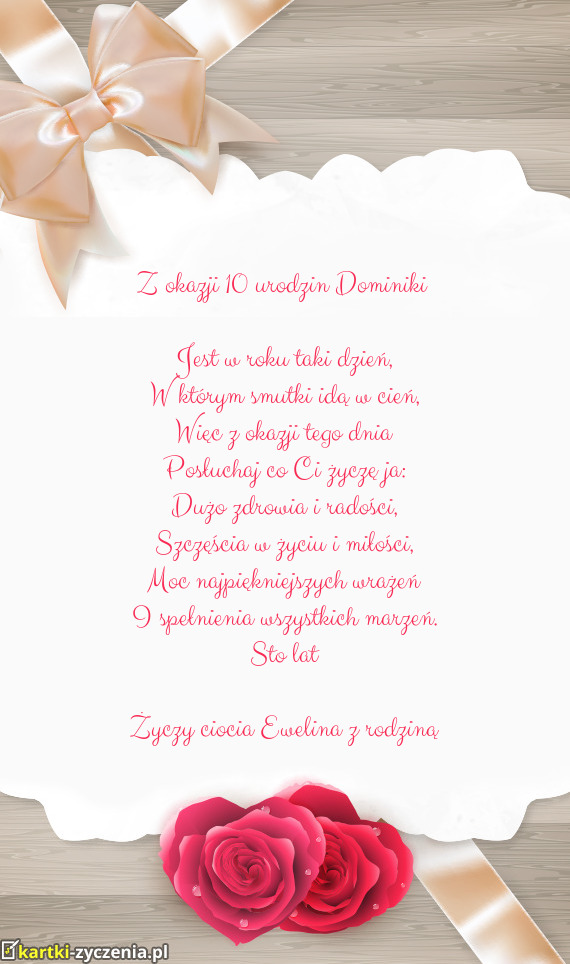 Z okazji 10 urodzin Dominiki
Jest w roku taki dzień,
W którym smutki idą w cień,
Więc z okazji tego dnia
Posłuchaj co Ci życzę ja:
Dużo zdrowia i radości,
Szczęścia w życiu i miłości,
Moc najpiękniejszych wrażeń
I spełnienia wszystkich marzeń.
Sto lat
Życzy ciocia Ewelina z rodziną
kartki-zyczenia.pl